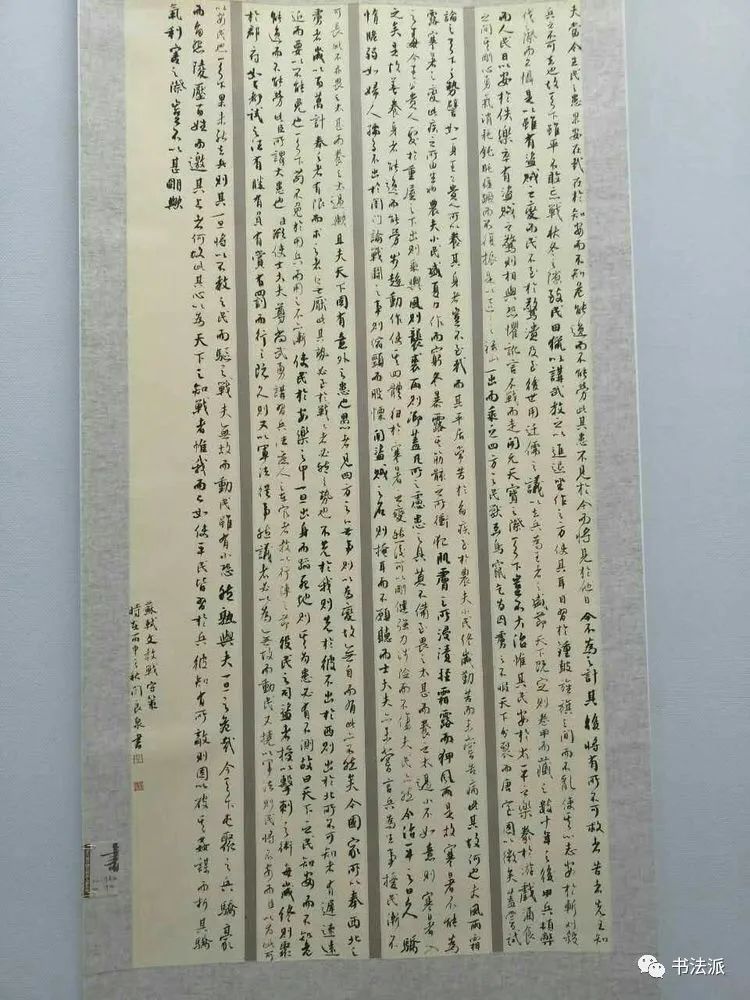 夫當今生民之患果安在哉在於知安而不知危能逸而不能勞此其患不見於今而將見於他日今不為之計其後將有所不可救者昔者先王知
兵之不可去也故天下雖平不敢忘戰秋冬之隙致民田獵以講武教之以進退坐作之方使其耳目習於鐘鼓旌旗之間而不亂使其心志安於斬刈殺
伐之際而不懾是以雖有盜賊之變而民不至於驚潰及至後世用迂儒之議以去兵為王者之盛節天下既定則卷甲而藏之數十年之後甲兵頓弊
而人民日以安於佚樂卒有盜賊之驚則相與恐懼訛言不戰而走開元天寶之際天下豈不大治惟其民安於太平之樂豢於游戲酒食
之間其剛心勇氣消耗鈍眊痿蹶而不復振是以區區之祿山一出而乘之四方之民獸奔鳥竄乞為囚虜之不暇天下分裂而唐室固以微矣蓋嘗試
論之天下之勢譬如一身王公貴人所以養其身者豈不至哉而其平居常苦於多疾至於農夫小民終歲勤苦而未嘗告病此其故何也夫風雨霜
露寒暑之變此疾之所由生也農夫小民盛夏力作而窮冬暴露其筋骸之所衝犯肌膚之所浸漬輕霜露而狎風雨是故寒暑不能為
之毒今王公貴人處於重屋之下出則乘輿風則襲裘雨則御蓋凡所以慮患之具莫不備至畏之太甚而養之太過小不如意則寒暑入
之矣是故善養身者使之能逸而能勞步趨動作使其四體狃於寒暑之變然後可以剛健強力涉險而不傷夫民亦然今治平之日久天下之人驕
惰脆弱如婦人孺子不出於閨門論戰鬭之事則縮頸而股慄聞盜賊之名則掩耳而不願聽而士大夫亦未嘗言兵以為生事擾民漸不
可長此不亦畏之太甚而養之太過歟且夫天下固有意外之患也愚者見四方之無事則以為變故無自而有此亦不然矣今國家所以奉西北之
虜者歲以百萬計奉之者有限而求之者無厭此其勢必至於戰戰者必然之勢也不先於我則先於彼不出於西則出於北所不可知者有遲速遠
近而要以不能免也天下苟不免於用兵而用之不以漸使民於安樂無事之中一旦出身而蹈死地則其為患必有不測故曰天下之民知安而不知危
能逸而不能勞此臣所謂大患也臣欲使士大夫尊尚武勇講習兵法庶人之在官者教以行陣之節役民之司盜者授以擊刺之術每歲終則聚
於郡府如古都試之法有勝負有賞罰而行之既久則又以軍法從事然議者必以為無故而動民又撓以軍法則民將不安而臣以為此所
以安民也天下果未能去兵則其一旦將以不教之民而驅之戰夫無故而動民雖有小恐然孰與夫一旦之危哉今天下屯聚之兵驕豪
而多怨陵壓百姓而邀其上者何故此其心以為天下之知戰者惟我而已如使平民皆習於兵彼知有所敵則固以破其姦謀而折其驕
氣利害之際豈不亦甚明歟
蘇軾文教戰守策
時在丙申之秋閆民泉書
书法派